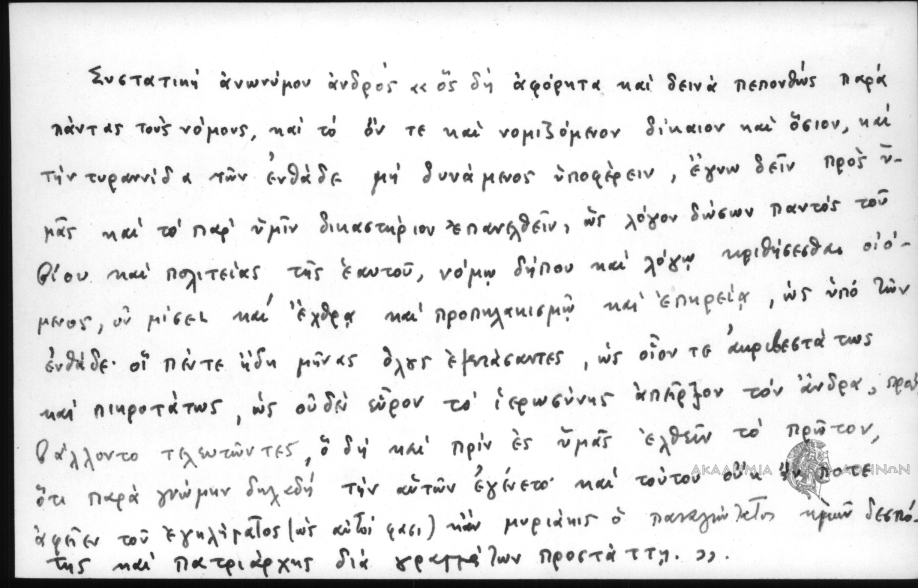 Συστατική ἀνωνύμου ἀνδρός «ὅς δή ἀφόρητα καί δεινά πεπονθώς παρά
πάντας τούς νόμους, καί τό ὄν τε καί νομιζόμενον δίκαιον καί ὅσιον, καί
τήν τυραννίδα τῶν ἐνθάδε μή δυνάμενος ὑποφέρειν, ἔγνω δεῖν πρός ὑ-
μᾶς καί τό παρ' ὑμῖν δικαστήριον ἐπανελθεῖν, ὡς λόγον δώσων παντός τοῦ
βίου καί πολιτείας τῆς ἑαυτοῦ, νόμῳ δήπου καί λόγῳ κριθήσεσθαι οἰό-
μενος, οὐ μίσει καί ἔχθρᾳ καί προπηλακισμῷ καί ἐπηρείᾳ, ὡς ὑπό τῶν
ἐνθάδε· οἵ πέντε ἤδη μῆνας ὅλους ἐξετάσαντες, ὡς οἷον τε ἀκριβεστάτως
καί πικροτάτως, ὡς οὐδέν εὗρον τό ἱερωσύνης ἀπεῖρξον τόν ἄνδρα, προὐ
βάλλοντο τελευτῶντες, ὅ δή καί πρίν ἐς ὑμᾶς ἐλθεῖν τό πρῶτον,
ὅτι παρά γνώμην δηλαδή τήν αὐτῶν ἐγένετο· καί τούτου οὐκ ἄν ποτε
ἀφεῖεν τοῦ ἐγκλήματος (ὡς αὐτοί φασι) κἄν μυριάκις ὁ παναγιώτατος ἡμῶν δεσπό-
της καί πατριάρχης διά γραμμάτων προστάττῃ. ».
ΑΚΑΔΗΜΙΑ ΑΘΗΝΩΝ